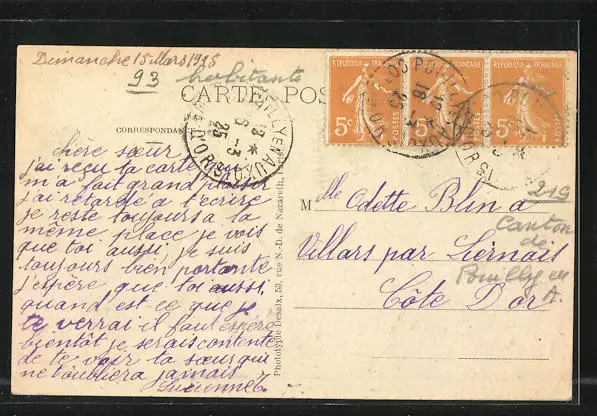 Dimanche 15 Mars 1925
93 habitants
CARTE POS
CORRESPONDAN
chère sœur
j'ai reçu ta carte qui
m'a fait grand plaisir
j'ai retardé a t'écrire
je reste toujours a la
même place je vois
que toi aussi, je suis
toujours bien portante
j'espère que toi aussi
quand est ce que je
te verrai il faut espéré
bientôt je serais contente
de te voir ta sœur qui
ne t'oubliera jamais
Lucienne
Phototypie Desaix, 53, rue N.-D. de Nazareth,
RÉPUBLIQUE FRANÇAISE
5c POSTES
RÉPUBLIQUE FRANÇAISE
5c POSTES
RÉPUBLIQUE FRANÇAISE
5c
Mlle Odette Blin a
Villars par Liernais
Côte D'or
219
Canton
de
Pouilly en
A.